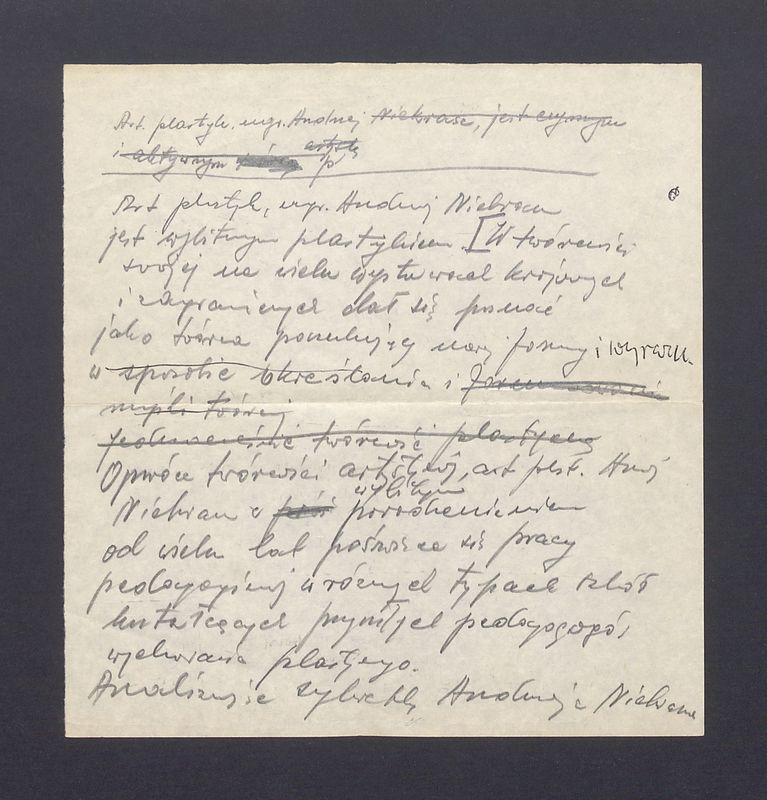 Art. plastyk. mgr. Andrzej Niekrasz, jest czynnym
i aktywnym
Art. plastyk, mgr. Andrzej Niekrasz
jest wybitnym plastykiem. W twórczości
swojej na wielu wystawach krajowych
i zagranicznych dał się poznać
jako twórca poszukujący nowej formy i wyrazu.
w sposobie określania i
myśli twórczej
twórczość plastyczną
Oprócz twórczości artystycznej, art. plast. Andrzej
Niekrasz z wybitnym powodzeniem
od wielu lat poświęca się pracy
pedagogicznej w różnych typach szkół
kształcących przyszłych pedagogów
wychowania plastycznego.
Analizując sylwetkę Andrzeja Niekrasza